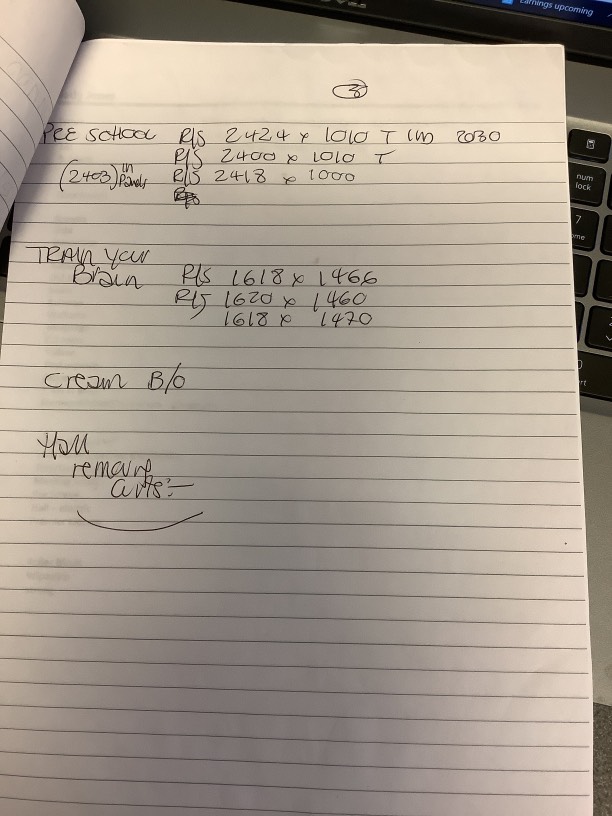 Earnings upcoming
3
PRE SCHOOL R/S 2424 x 1010 T IM 2030
R/S 2400 x 1010 T
(2403) in Panels R/S 2418 x 1000
TRAIN YOUR
Brain R/S 1618 x 1466
R/S 1620 x 1460
1618 x 1470
Cream B/O
Hall
remove
num
lock
7